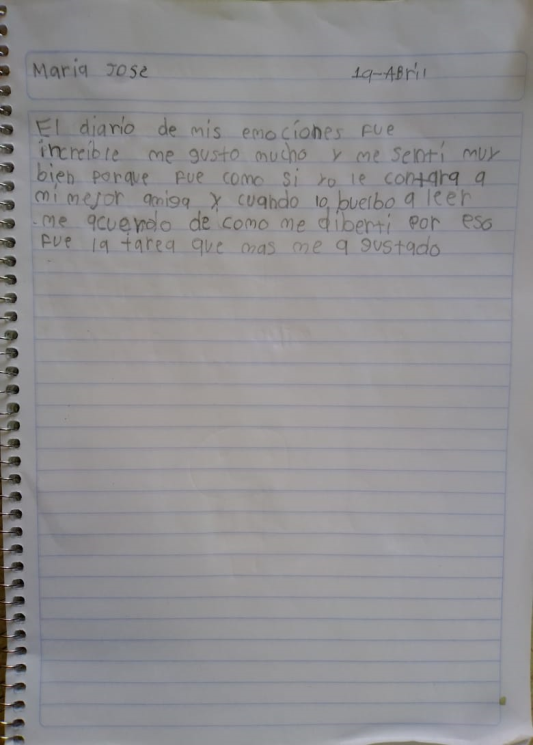 Maria Jose 19-Abril
El diario de mis emociones fue
increible me gusto mucho y me sentí muy
bien porque fue como si yo le contara a
mi mejor amiga y cuando lo buelbo a leer
me acuerdo de como me diberti por eso
fue la tarea que mas me a gustado